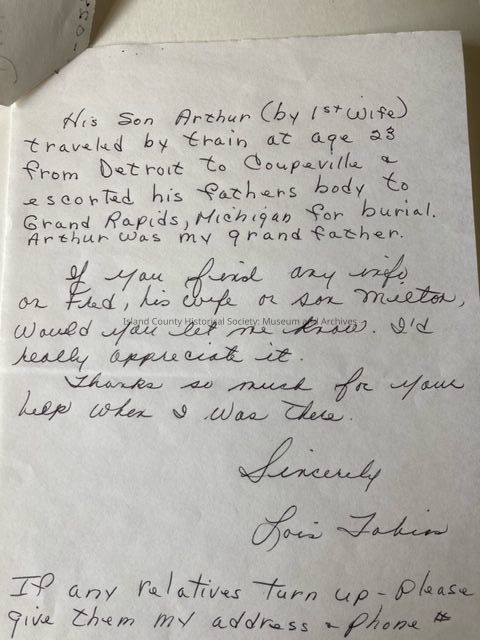 His Son Arthur (by 1st Wife)
traveled by train at age 23
from Detroit to Coupeville &
escorted his fathers body to
Grand Rapids, Michigan for burial.
Arthur was my grand father.
If you find any info
on Fred, his wife or son Milton,
would you let me know. I'd
Island County Historical Society: Museum and Archives
really appreciate it.
Thanks so much for your
help when I was there.
Sincerely
Lois Tobin
If any relatives turn up - Please
give them my address & phone #